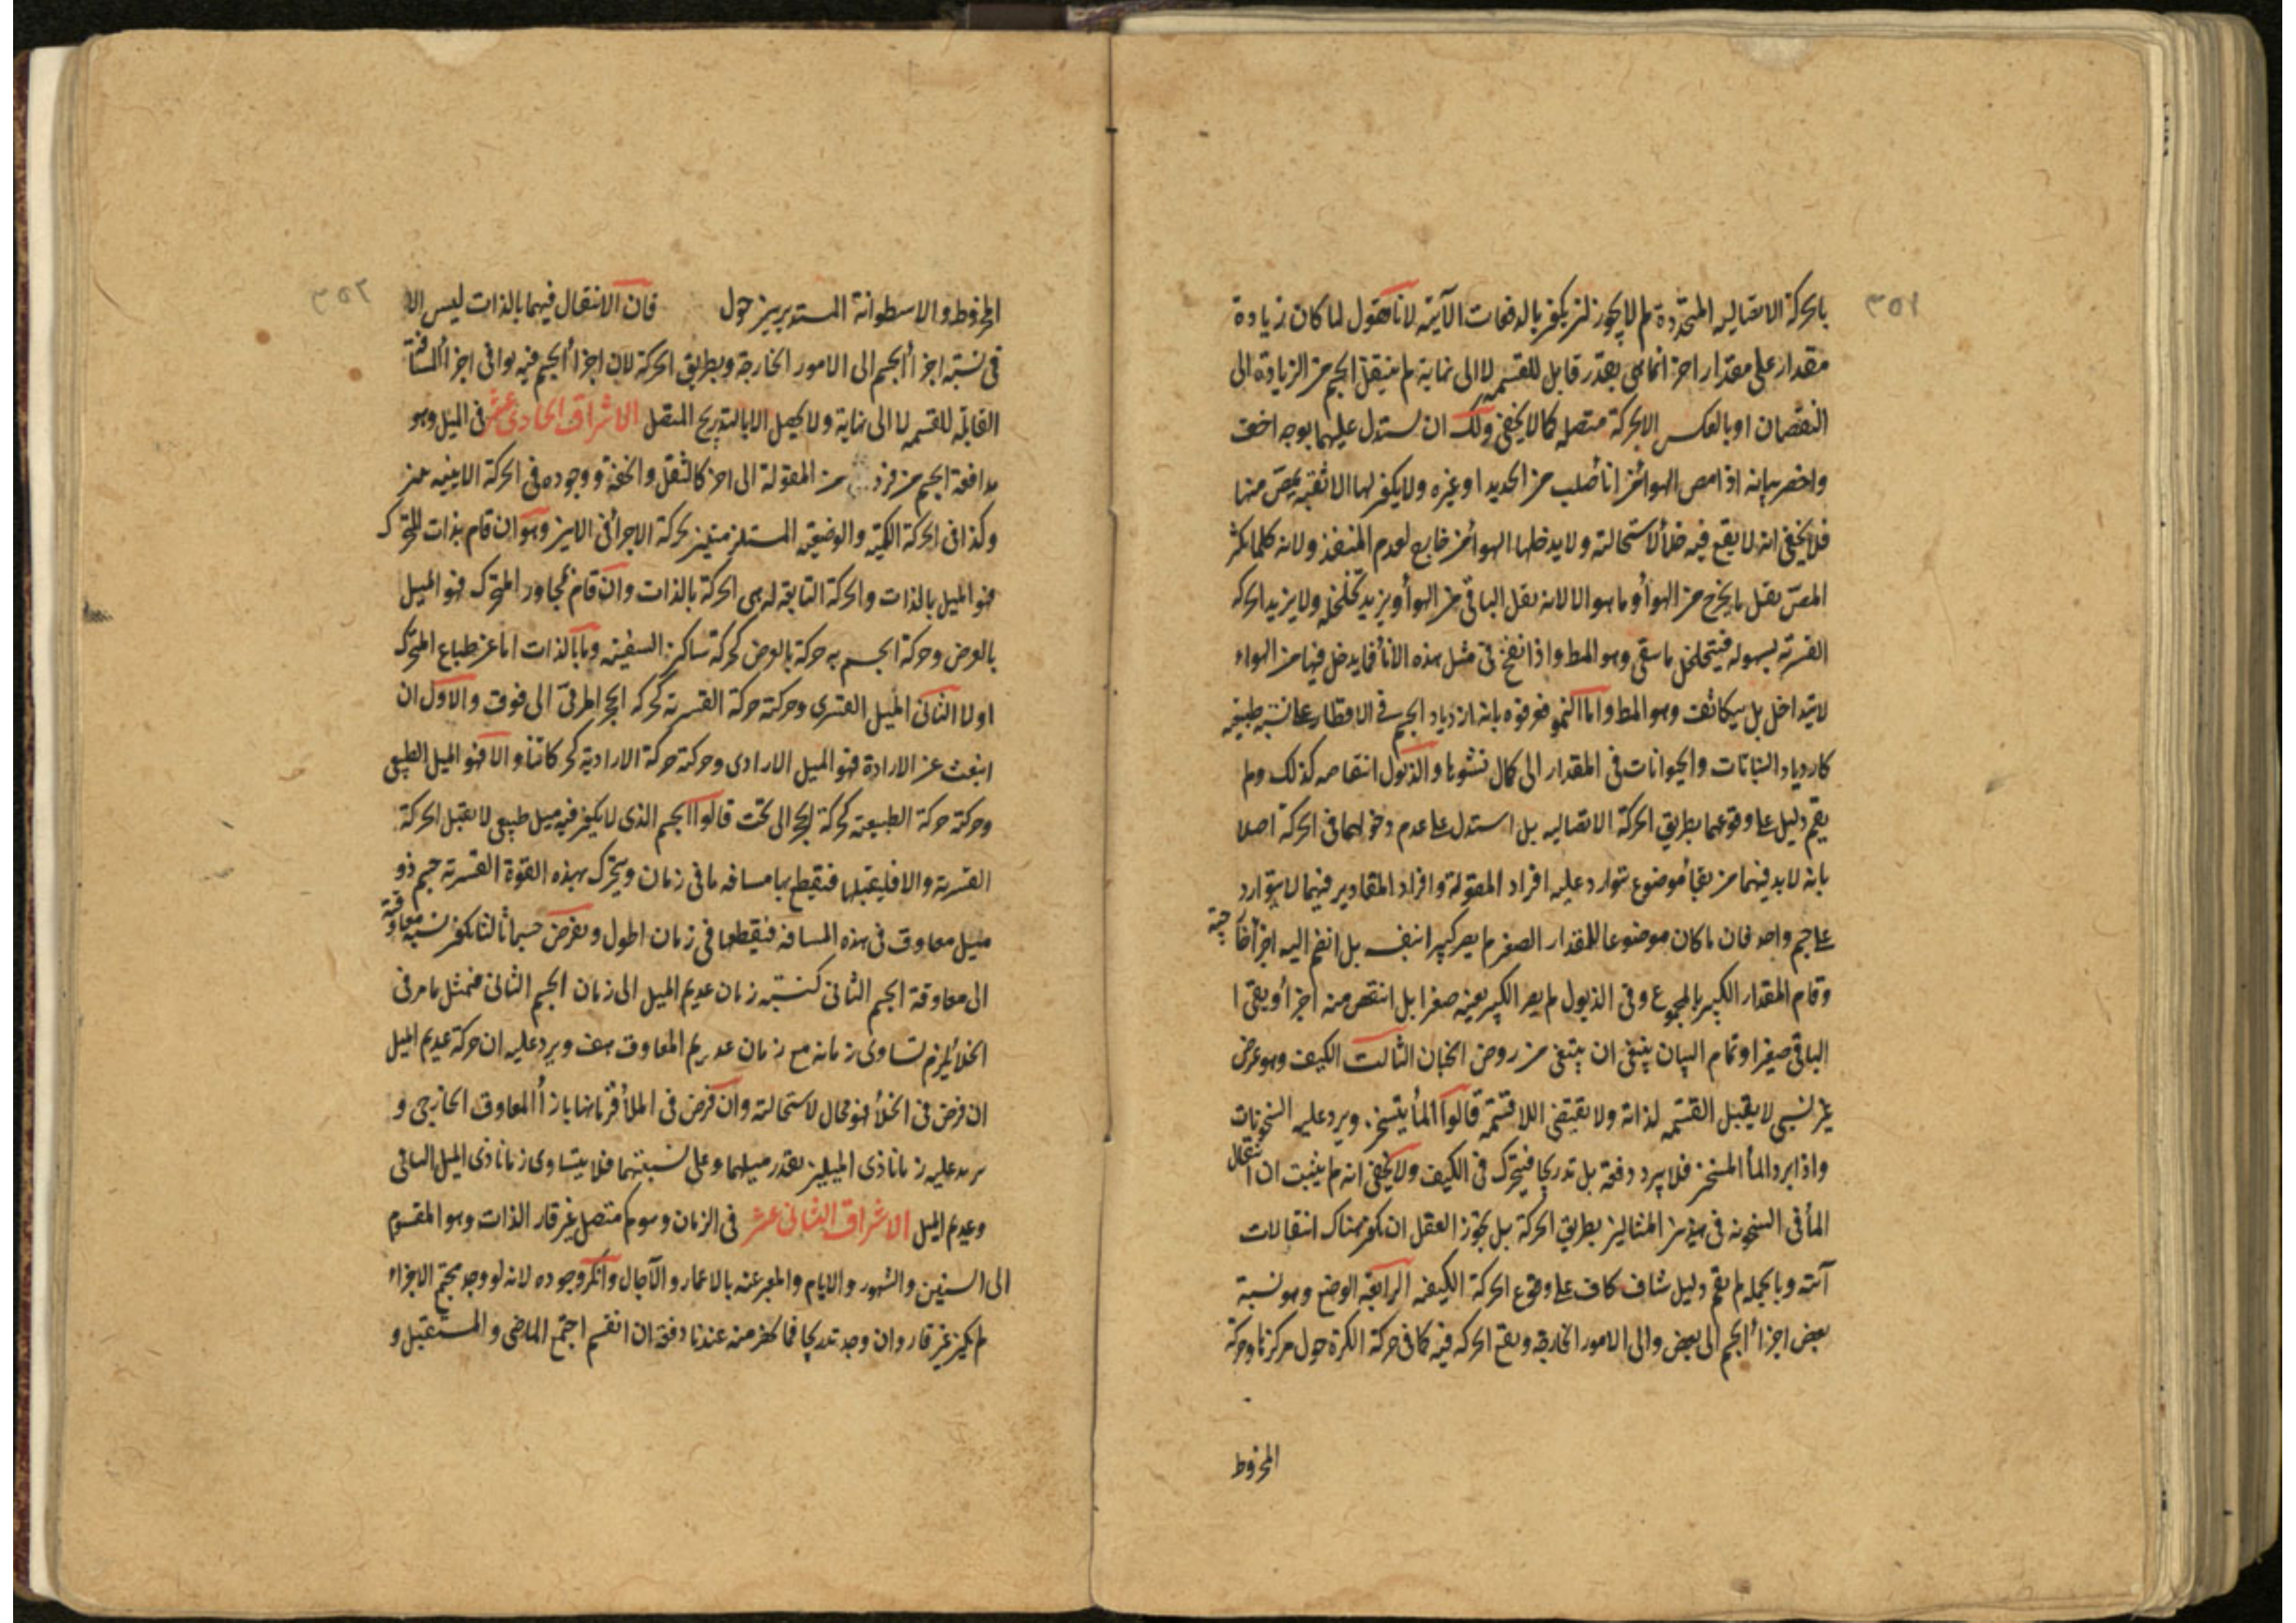 بالحركة الاتصاليه المتجددة لم لا يجوز ان يكون بالدفعات الآنية لانا نقول لما كان زيادة
مقدار على مقدار اخر انما هي بقدر قابل للقسمه لا الى نهاية لم ينتقل الجسم من الزيادة الى
النقصان او بالعكس الا بحركة متصله كما لا يخفى ولك ان تستدل عليهما بوجه اخف
واخصر بيانه اذا مص الهوا من انا أصلب من الحديد او غيره ولا يكون لها الا ثقبة يمص منها
فلا يخفى انه لا يقع فيه خلأ لاستحالته ولا يدخلها الهوا من خارج لعدم المنفذ ولانه كلما يكثر
المص يقل ما يخرج من الهوأ وما هو الا لانه يقل الباقي من الهوأ ويزيد تخلخله ولا يزيد الحركه
القسرية بسهوله فيتخلخل ما سيقى وهو المط واذا نفخ في مثل هذه الأنأ فما يدخل فيها من الهواء
لا يتداخل بل يتكاثف وهو المط واما النمو فعرفوه بانه ازدياد الجسم في الاقطار على نسبة طبيعيه
كازدياد النباتات والحيوانات في المقدار الى كمال نشوها والذبول انتقاصه كذلك ولم
يقم دليل على وقوعهما بطريق الحركة الاتصاليه بل استدل على عدم دخولهما في الحركة اصلا
بانه لابد فيهما من بقأ موضوع يتوارد عليه افراد المقولة وافراد المقادير فيهما لا يتوارد
على جسم واحد فان ما كان موضوعا للمقدار الصغير لم يصر كبيرا بنفسه بل انضم اليه اجزأ خارجية
وقام المقدار الكبير بالمجموع وفي الذبول لم يصر الكبير بعينه صغيرا بل انتقص منه اجزأ وبقي ا
الباقي صغيرا وتمام البيان ينبغي ان يبتغى من روض الجنان الثالث الكيف وهو عرض
غير نسبي لا يقبل القسمه لذاته ولا يقتضي اللا قسمة قالوا المأ يتسخن ويرد عليه السخونات
واذا برد المأ المسخن فلا يبرد دفعة بل تدريجا فيتحرك في الكيف ولا يخفى انه لم يثبت ان انتقال
المأ في السخونه في هذين المثالين بطريق الحركة بل يجوز العقل ان يكون هناك انتقالات
آنية وبالجمله لم يقم دليل شاف كاف على وقوع الحركة الكيفيه الرابعة الوضع وهو نسبة
بعض اجزأ الجسم الى بعض والى الامور الخارجة ويقع الحركه فيه كما في حركة الكرة حول مركزها وحركة
المخروط
٣٥١
المخروط والاسطوانة المستديرين حول فان الانتقال فيهما بالذات ليس الا
في نسبة اجزأ الجسم الى الامور الخارجة وبطريق الحركة لان اجزأ الجسم فيه يوافى اجزأ المسافة
القابلة للقسمه لا الى نهاية ولا يحصل الا بالتدريج المتصل الاشراق الحادي عشر في الميل وهو
مدافعة الجسم من فرد من المقولة الى اخر كالثقل والخفة ووجوده في الحركة الاينيه بين
وكذا في الحركة الكمية والوضعية المستلزمتين لحركة الاجزأ في الاين وهو ان قام بذات المتحرك
فهو الميل بالذات والحركة التابعة له هي الحركة بالذات وان قام بمجاور المتحرك فهو الميل
بالعرض وحركة الجسم به حركة بالعرض كحركة ساكن السفينه وما بالذات اما عن طباع المتحرك
اولا الثاني الميل القسري وحركته حركة القسرية كحركه الحجر المرمي الى فوق والاول ان
انبعث عن الارادة فهو الميل الارادي وحركته حركة الارادية كحركاتنا والا فهو الميل الطبيعي
وحركته حركة الطبيعية كحركة الحجر الى تحت قالوا الجسم الذي لا يكون فيه ميل طبيعي لا يقبل الحركة
القسرية والا فليقبلها فيقطع بها مسافه ما في زمان ويتحرك بهذه القوة القسرية جسم ذو
ميل معاوق في هذه المسافة فيقطعها في زمان اطول ويفرض جسما ثالثا يكون نسبة معاوقته
الى معاوقة الجسم الثاني كنسبة زمان عديم الميل الى زمان الجسم الثاني فبمثل ما مر في
الخلأ يلزم تساوي زمانه مع زمان عديم المعاوق هف ويرد عليه ان حركة عديم الميل
ان فرض في الخلأ فهو محال لاستحالته وان فرض في الملأ فزمانها بازأ المعاوق الخارجي و
يزيد عليه زمانا ذي الميلين بقدر ميلهما وعلى نسبتهما فلا يتساوى زمانا ذي الميل الباقي
وعديم الميل الاشراق الثاني عشر في الزمان وهو كم متصل غير قار الذات وهو المقسوم
الى السنين والشهور والايام والمعبر عنه بالاعمار والآجال وانكر وجوده لانه لو وجد مجتمع الاجزاء
لم يكن غير قار وان وجد تدريجا فما يكون منه عندنا دفعة ان انقسم اجتمع الماضي والمستقبل و
٣٥٢